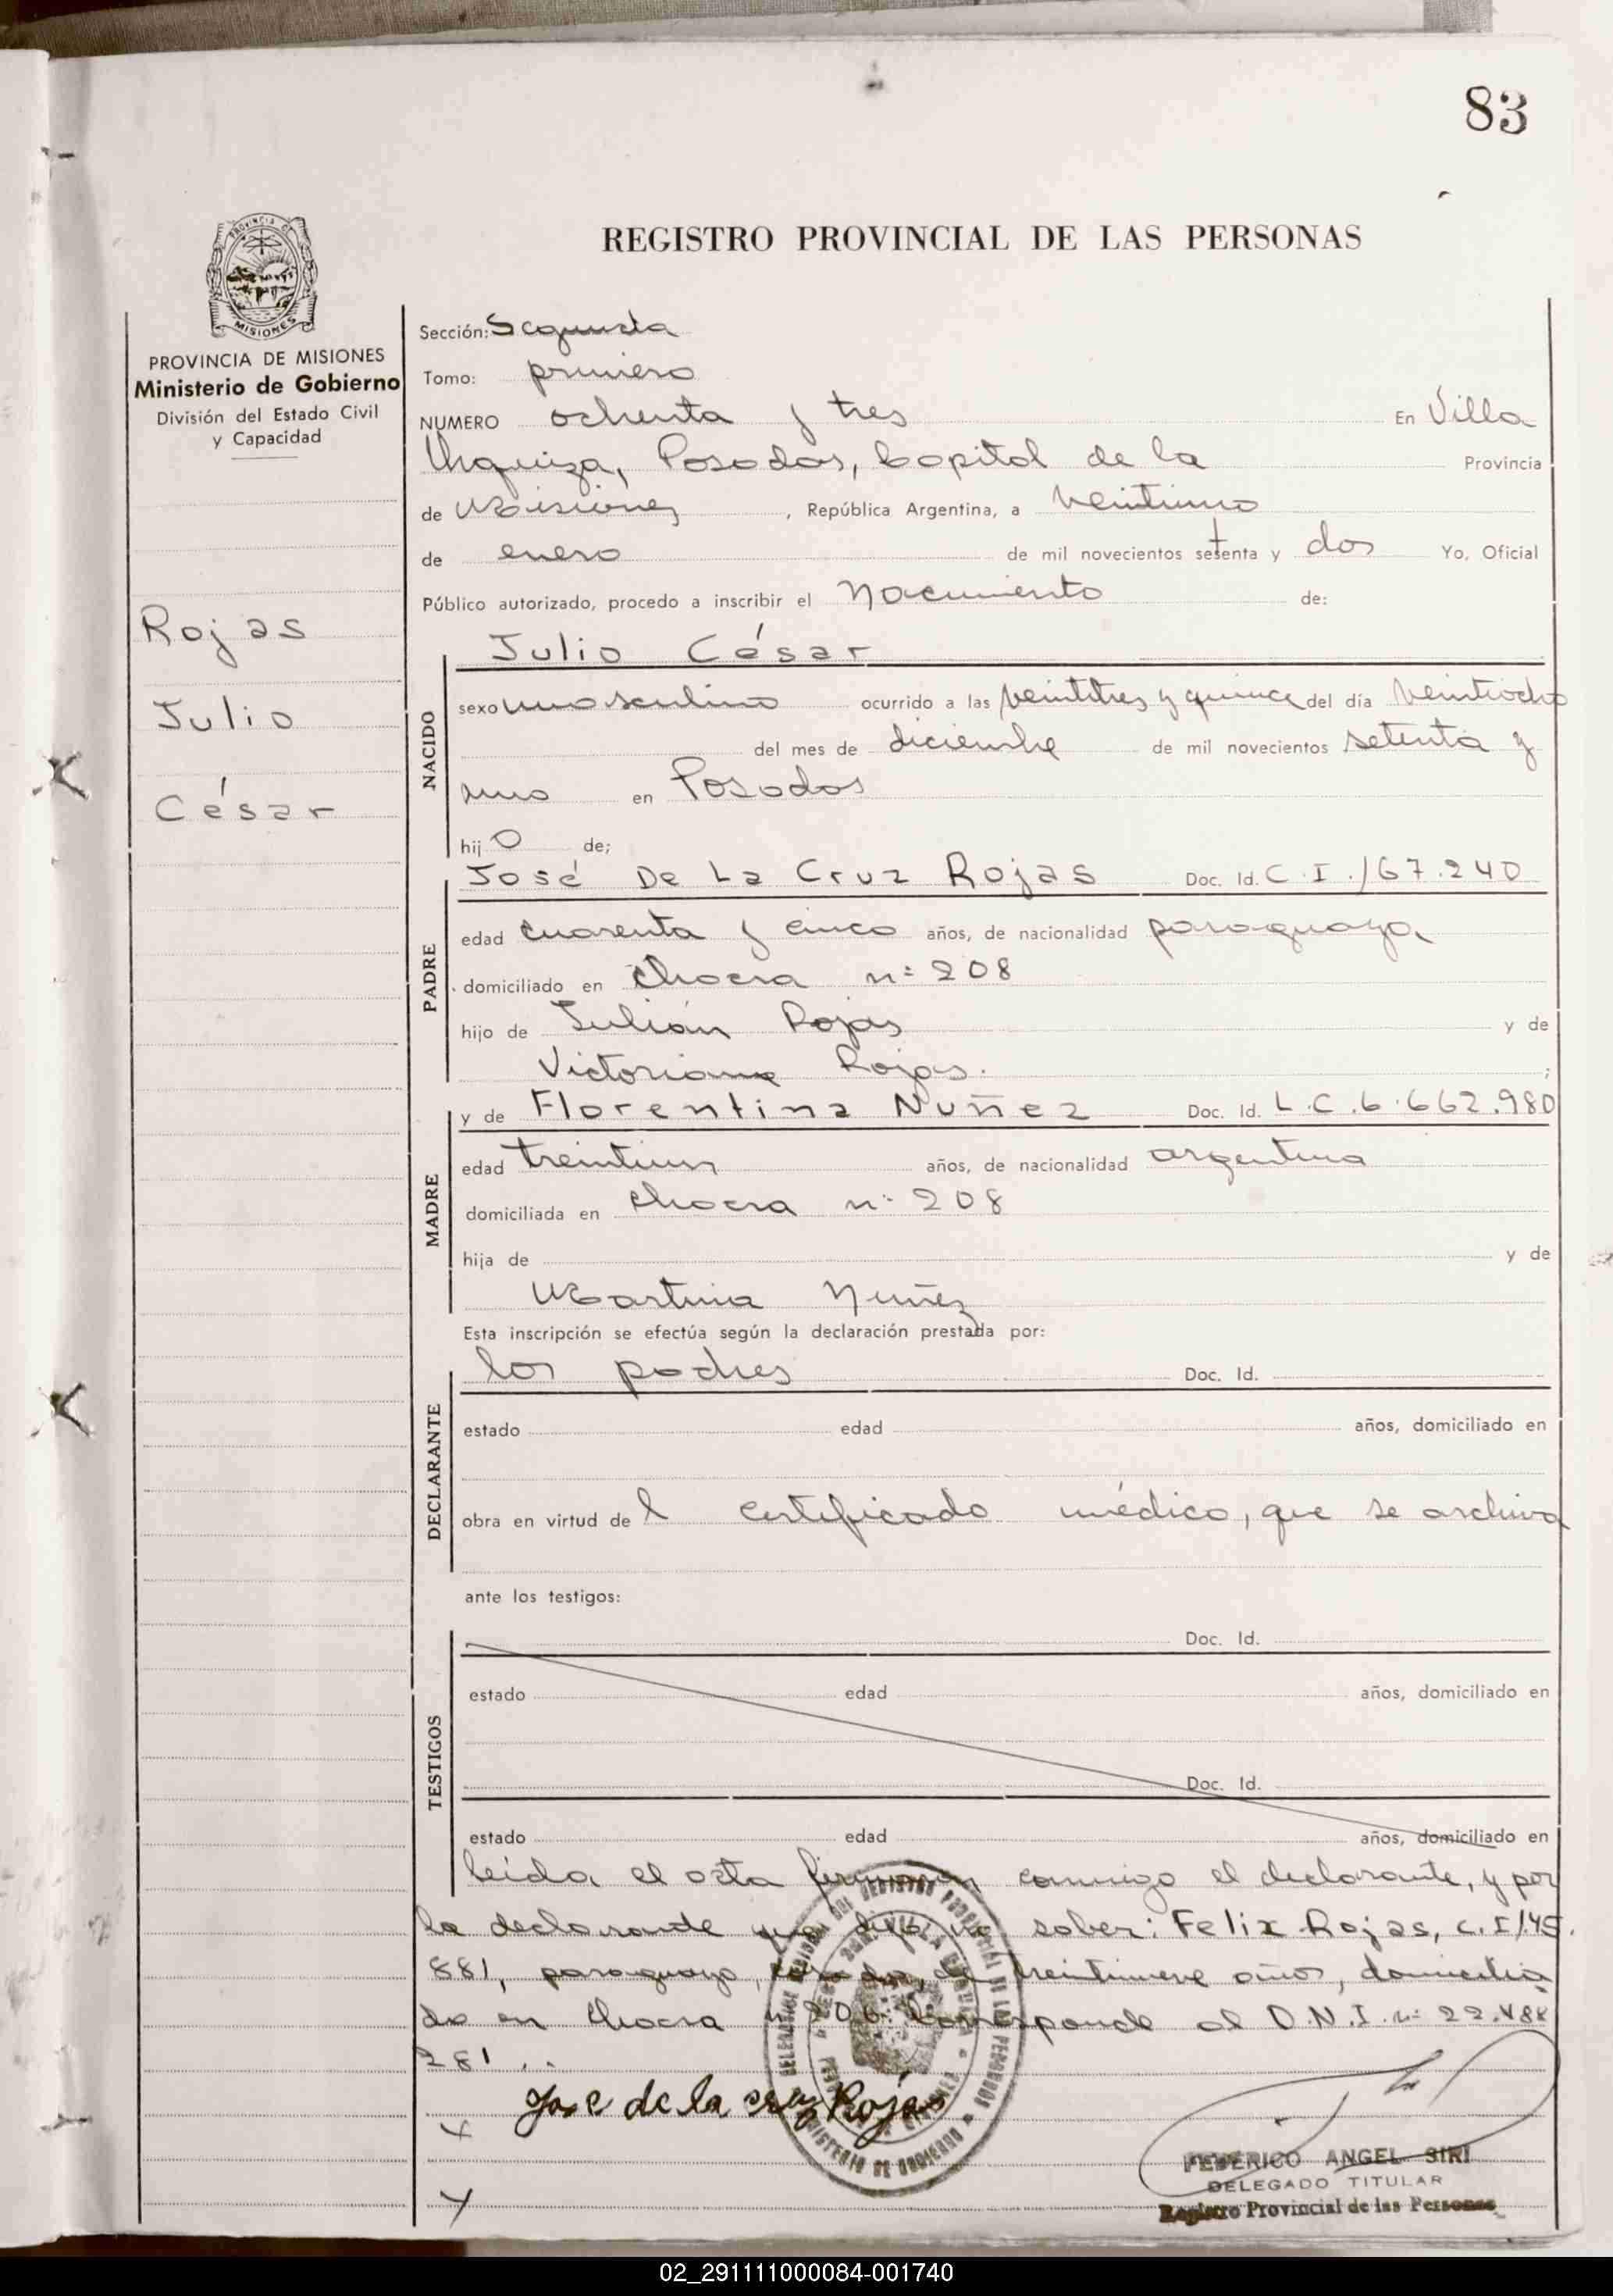 83
PROVINCIA DE
MISIONES
PROVINCIA DE MISIONES
Ministerio de Gobierno
División del Estado Civil
y Capacidad
Rojas
Julio
César
REGISTRO PROVINCIAL DE LAS PERSONAS
Sección: Segunda
Tomo: primero
NUMERO ochenta y tres En Villa
Urquiza, Posadas, Capital de la Provincia
de Misiones, República Argentina, a veintiuno
de enero de mil novecientos setenta y dos Yo, Oficial
Público autorizado, procedo a inscribir el nacimiento de:
Julio César
NACIDO
sexo masculino ocurrido a las veintitres y quince del día veintiocho
del mes de diciembre de mil novecientos setenta y
uno en Posadas
hijo de;
PADRE
José De La Cruz Rojas Doc. Id. C.I./67.240
edad cuarenta y cinco años, de nacionalidad paraguaya
domiciliado en Chacra n: 208
hijo de Julián Rojas y de
Victoriana Rojas. ;
MADRE
y de Florentina Nuñez Doc. Id. L.C.6.662.980
edad treintiun años, de nacionalidad argentina
domiciliada en Chacra n: 208
hija de y de
Martina Nuñez
Esta inscripción se efectúa según la declaración prestada por:
DECLARANTE
los padres Doc. Id.
estado edad años, domiciliado en
obra en virtud del certificado médico, que se archiva
ante los testigos:
TESTIGOS
Doc. Id.
estado edad años, domiciliado en
Doc. Id.
estado edad años, domiciliado en
leida el acta firman conmigo el declarante, y por
la declarante que dijo no saber: Felix Rojas, C.I/.45.
881, paraguayo, de treintinueve años, domicilia
do en Chacra n: 206. Corresponde al D.N.I. n: 22.488
281..
Jose de la cruz Rojas
FEDERICO ANGEL SIRI
DELEGADO TITULAR
Registro Provincial de las Personas
02_291111000084-001740